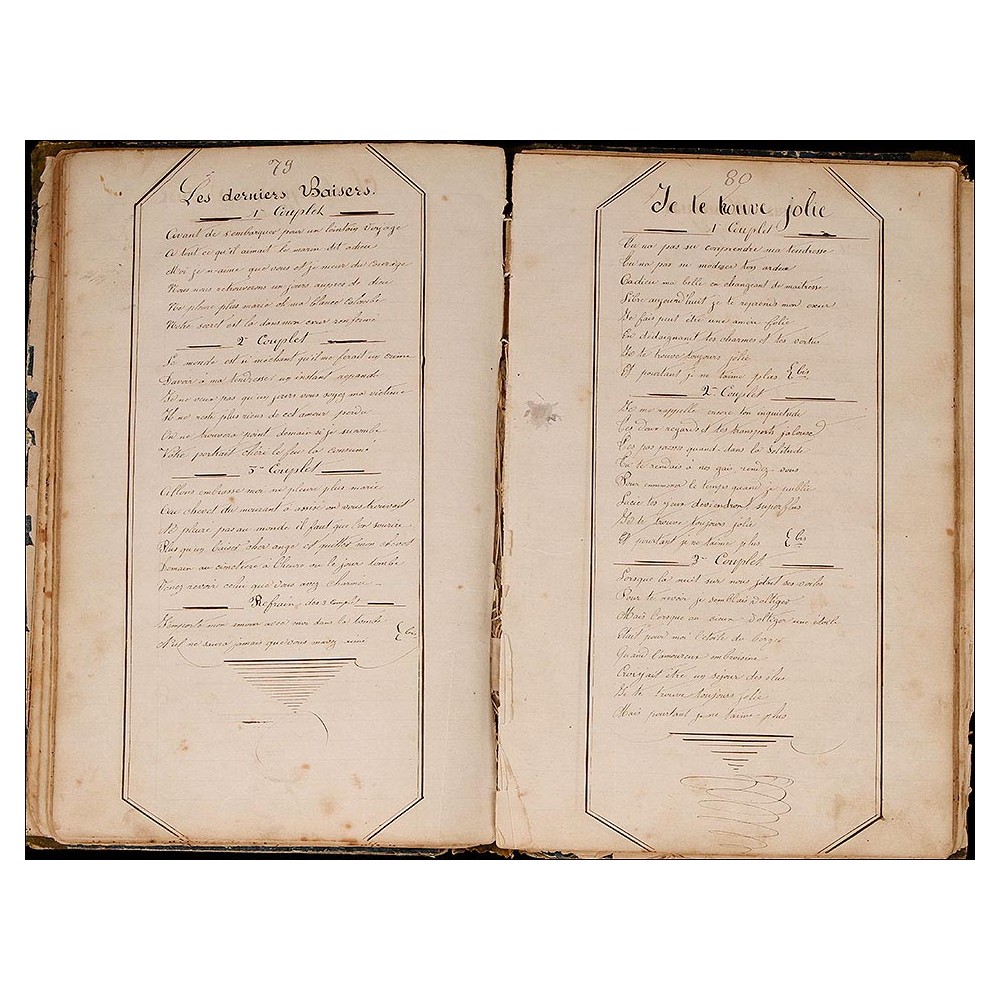 79
Les derniers Baisers.
1er Couplet
Avant de s'embarquer pour un lointoin voyage
A tout ce qu'il aimait le marin dit adieu
Moi je n'aime que vous et je meur du courage
Nous nous retrouverons un jours aupres de dieu
Ne pleure plus marie oh ma blance colombe
Votre secret est la dans mon cœur renfermé
2e Couplet
Le monde est si méchant qu'il me ferait un crime
Davoir à ma tendresse un instant
Je ne veux pas qu'un jours vous soyez ma victime
Il ne reste plus riens de cet amour perdu
On ne trouvera point demain si je sucombe
Votre portrait chéri le feu la consumé
3me Couplet
Allons embrasse moi ne pleure plus marie
Au chevet du mourant
Ne pleure pas au monde il faut que l'on sourie
Plus qu'un baiser cher ange et quitter mon
Demain au cimetière à l'heure ou le jour tombe
Venez revoir celui que vous avez charmé
Refrain des 3 Couplet
J'emporte mon amour avec moi dans la tombe
Nul ne saura jamais que vous mavez aimé
bis
80
Je te trouve jolie
1er Couplet
Tu na pas su comprendre ma tendresse
Tu na pas su modérer ton ardeur
Cadieu ma belle en changeant de maitresse
Libre aujourd'huit je te reprends mon cœur
Je fais peut etre une amère folie
En dédaignant tes charmes et tes vertus
Je te trouve toujours jolie
Et pourtant je ne taime plus bis
2me Couplet
Je me rappelle encore ton inquietude
Tes doux regards et tes transports jalouse
Tes pas passer quand dans la solitude
Tu te rendais à nos gais rendez-vous
Pour emmener le temps quand je publie
tes yeux deviendront superflus
Je te trouve toujours jolie
Et pourtant je ne taime plus bis
3me Couplet
Lorsque la nuit sur nous jetait ses voiles
Pour te revoir je semblais
Mais lorsque au cieux une étoile
Etait pour moi l'étoile du berger
Quand l'amoureux
Croyait être un séjour des élus
Je te trouve toujours jolie
Mais pourtant je ne taime plus